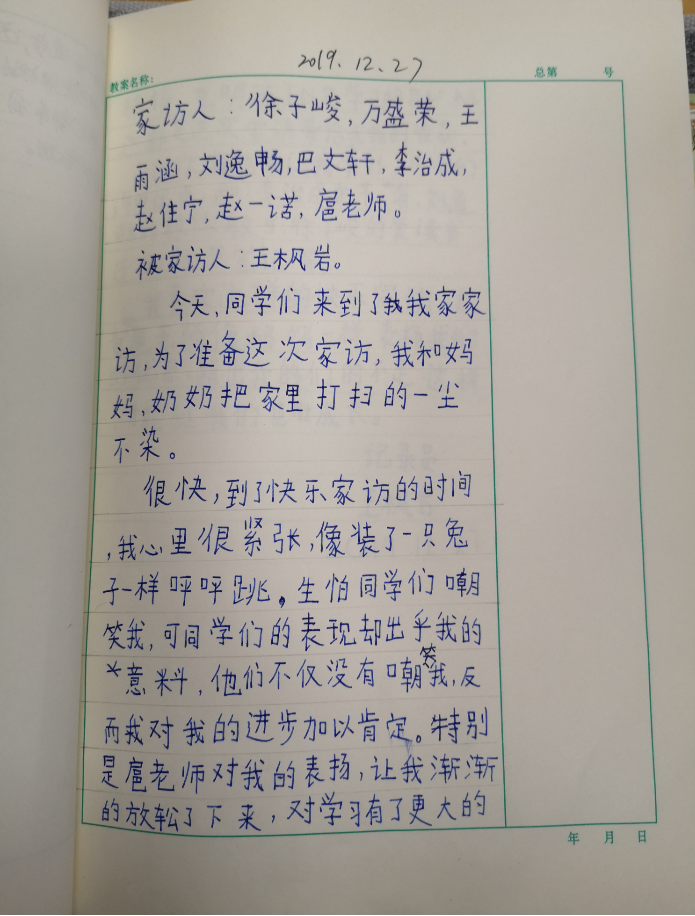 2019.12.27
教案名称: 总第 号
家访人：徐子峻，万盛荣，王
雨涵，刘逸畅，巴文轩，李治成，
赵住宁，赵一诺，扈老师。
被家访人：王枫岩。
今天，同学们来到了我家家
访，为了准备这次家访，我和妈
妈、奶奶把家里打扫的一尘
不染。
很快，到了快乐家访的时间
，我心里很紧张，像装了一只兔
子一样呯呯跳。生怕同学们嘲
笑我，可同学们的表现却出乎我的
意料，他们不仅没有嘲笑我，反
而我对我的进步加以肯定。特别
是扈老师对我的表扬，让我渐渐
的放松了下来，对学习有了更大的
年 月 日